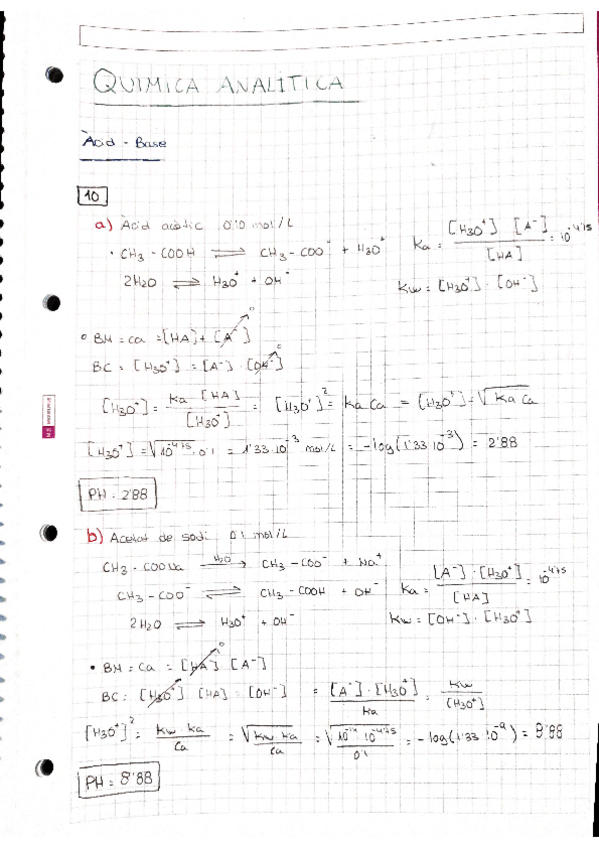 QUIMICA ANALITICA
Àcid - Base
10
a) Àcid acètic 0'10 mol/L
• CH3 - COOH ⇌ CH3 - COO⁻ + H3O⁺ Ka = [H3O⁺] [A⁻] / [HA] = 10^-4'75
2H2O ⇌ H3O⁺ + OH⁻ Kw = [H3O⁺] · [OH⁻]
BM = Ca = [HA] + [A⁻] 0
BC = [H3O⁺] = [A⁻] · [OH⁻] 0
[H3O⁺] = Ka [HA] / [H3O⁺] = [H3O⁺]² = Ka Ca = [H3O⁺] = √Ka Ca
[H3O⁺] = √10^-4'75 · 0'1 = 1'33 · 10^-3 mol/L = -log(1'33 10^-3) = 2'88
PH = 2'88
b) Acetat de sodi 0'1 mol/L
CH3 - COONa H2O→ CH3 - COO⁻ + Na⁺
CH3 - COO⁻ ⇌ CH3 - COOH + OH⁻ Ka = [A⁻] · [H3O⁺] / [HA] = 10^-4'75
2H2O ⇌ H3O⁺ + OH⁻ Kw = [OH⁻] · [H3O⁺]
• BM = Ca = [HA] 0 [A⁻]
BC = [H3O⁺] 0 [HA] = [OH⁻] = [A⁻] · [H3O⁺] / Ka = Kw / [H3O⁺]
[H3O⁺]² = Kw Ka / Ca = √Kw Ka / Ca = √10^-14 10^-4'75 / 0'1 = -log(1'33 10^-9) = 8'88
PH = 8'88